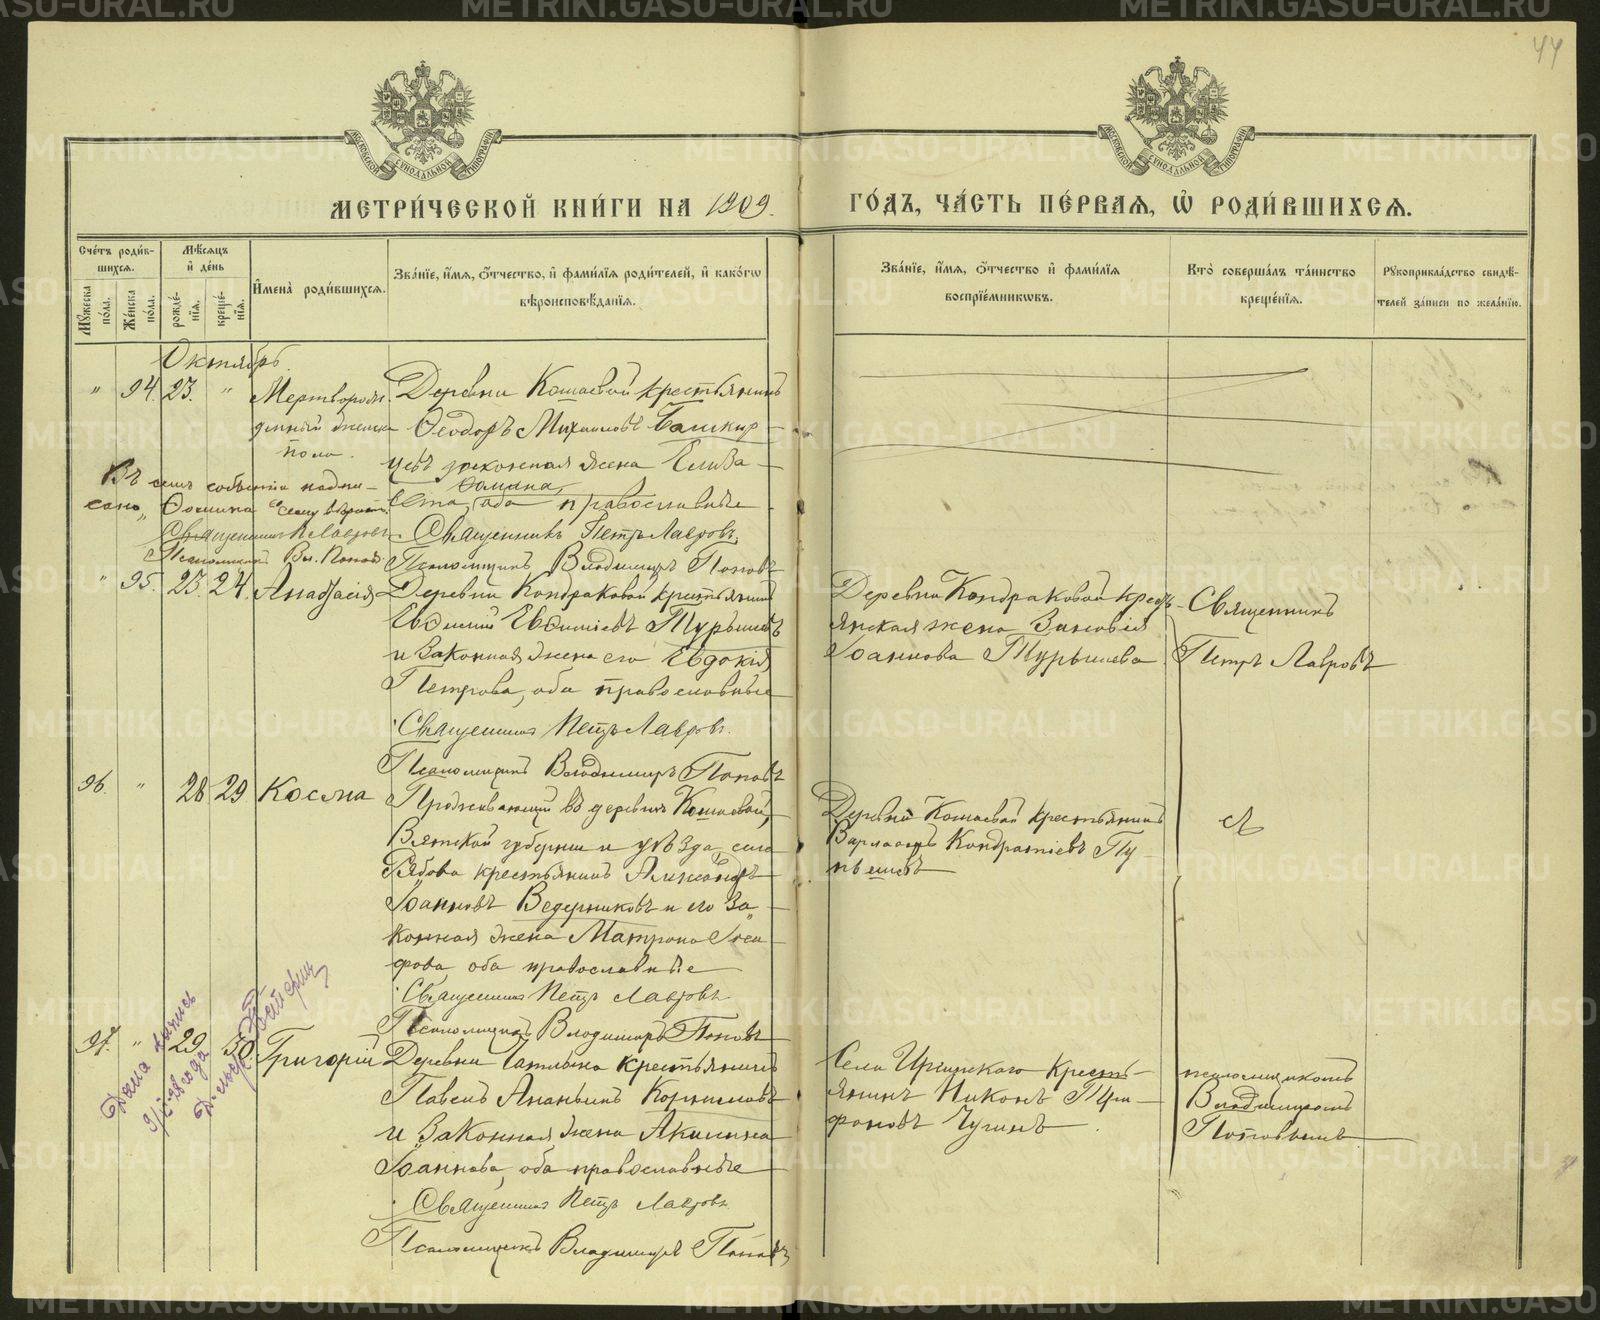 44
МОСКОВСКОЙ СѴНОДАЛЬНОЙ ТИПОГРАФІИ
МОСКОВСКОЙ СѴНОДАЛЬНОЙ ТИПОГРАФІИ
МЕТРИ́ЧЕСКОЙ КНИ́ГИ НА 1909.
ГО́ДЪ, ЧА́СТЬ ПЕ́РВАѦ, Ѡ҆ РОДИ́ВШИХСѦ.
Сче́тъ роди́в-
шихсѧ.
Мѣ́сѧцъ
и҆ де́нь
Мꙋ́жеска по́ла.
Же́нска по́ла.
рожде́-
нїѧ.
креще́-
нїѧ.
И҆мена̀ роди́вшихсѧ.
Зва́нїе, и҆́мѧ, ѻ҆́тчество, и҆ фами́лїѧ роди́телей, и҆ како́гѡ
вѣроисповѣ́данїѧ.
Зва́нїе, и҆́мѧ, ѻ҆́тчество и҆ фами́лїѧ
воспрїе́мникѡвъ.
Кто̀ соверша́лъ та́инство
креще́нїѧ.
Рꙋкоприкла́дство свидѣ́-
телей за́писи по жела́нїю.
Октябрь.
" 94. 23. " Мертворож-
денный женск
пола.
Деревни Кошаевой крестьянинъ
Ѳеодоръ Михаиловъ Башкир-
цевъ законная жена Елиза-
Ѳомина,
вета, оба православные
Въ семъ событіи надпи-
сано "Ѳомина"
Священникъ П. Лавровъ
Псаломщикъ Вл. Поповъ
Священникъ Петръ Лавровъ.
Псаломщикъ Владимиръ Поповъ
" 95. 23. 24. Анастасія
Деревни Кондраковой крестьянинъ
Евѳимій Евѳиміевъ Турышевъ
и законная жена его Евдокія
Петрова, оба православные
Священникъ Петръ Лавровъ.
Псаломщикъ Владимиръ Поповъ
Деревни Кондраковой крестъ-
янская жена Зиновія
Іоаннова Турышева.
Священникъ
Петръ Лавровъ
96. " 28 29 Косма
Проживающій въ деревнѣ Кошаевой,
Вятской губерніи и уѣзда, села
Рябова крестьянинъ Александръ
Іоанновъ Ведерниковъ и его за-
конная жена Матрона Іоси-
фова, оба православные
Священникъ Петръ Лавровъ
Псаломщикъ Владимиръ Поповъ
Деревни Кошаевой крестьянинъ
Варлаамъ Кондратіевъ Пу-
пышевъ
97. " 29 30 Григорій
Дана выпись
Деревни крестьянинъ
Павелъ Ананьинъ Корниловъ
и законная жена Акилина
Іоаннова, оба православные
Священникъ Петръ Лавровъ
Псаломщикъ Владимиръ Поповъ
Села Иргинскаго кресть-
янинъ Никонъ Три-
фоновъ Чугинъ.
псаломщикомъ
Владимиромъ
Поповымъ
METRIKI.GASO-URAL.RU